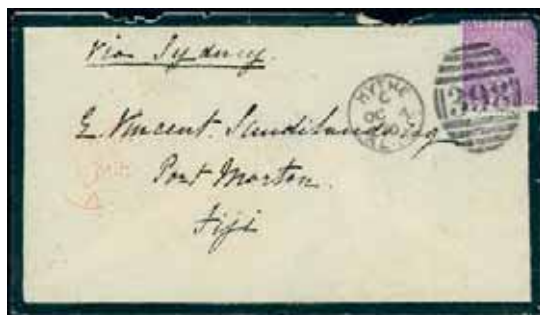 via Sydney.
HYTHE
C
OC 7
398
E Vincent Sandilands Esq
Port Morton.
Fiji